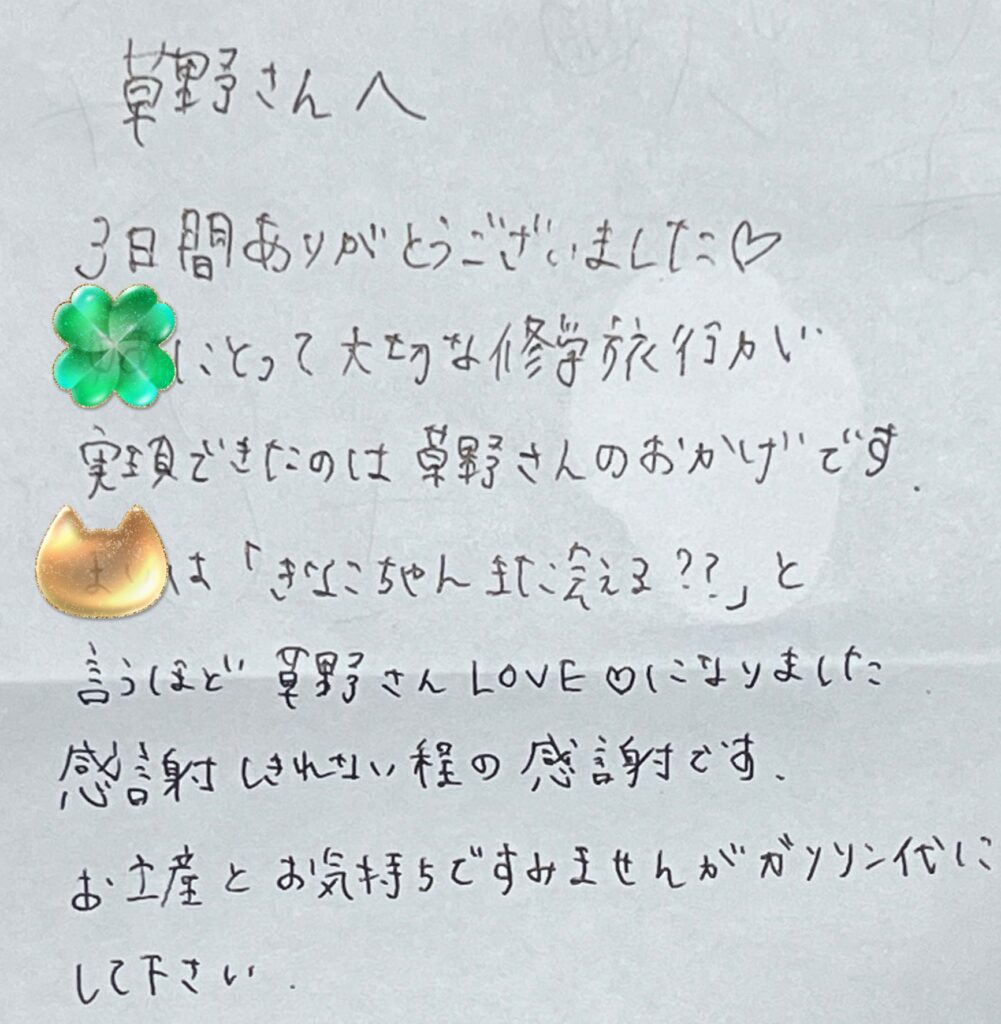 草野さんへ
3日間ありがとうございました♡
にとって大切な修学旅行が
実現できたのは草野さんのおかげです.
は「きなこちゃんまた会える??」と
言うほど草野さんLOVE♡になりました
感謝しきれない程の感謝です.
お土産とお気持ちですみませんがガソリン代に
して下さい.